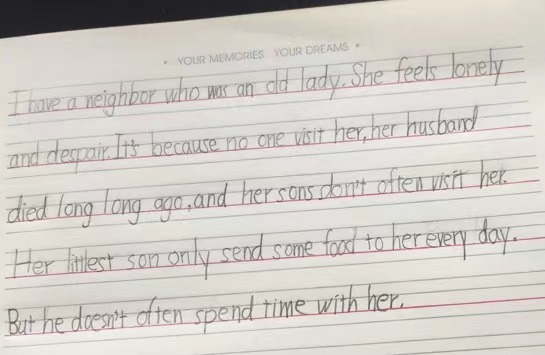 • YOUR MEMORIES YOUR DREAMS •
I have a neighbor who was an old lady. She feels lonely
and despair. It's because no one visit her, her husband
died long long ago, and her sons don't often visit her.
Her littlest son only send some food to her every day.
But he doesn't often spend time with her.